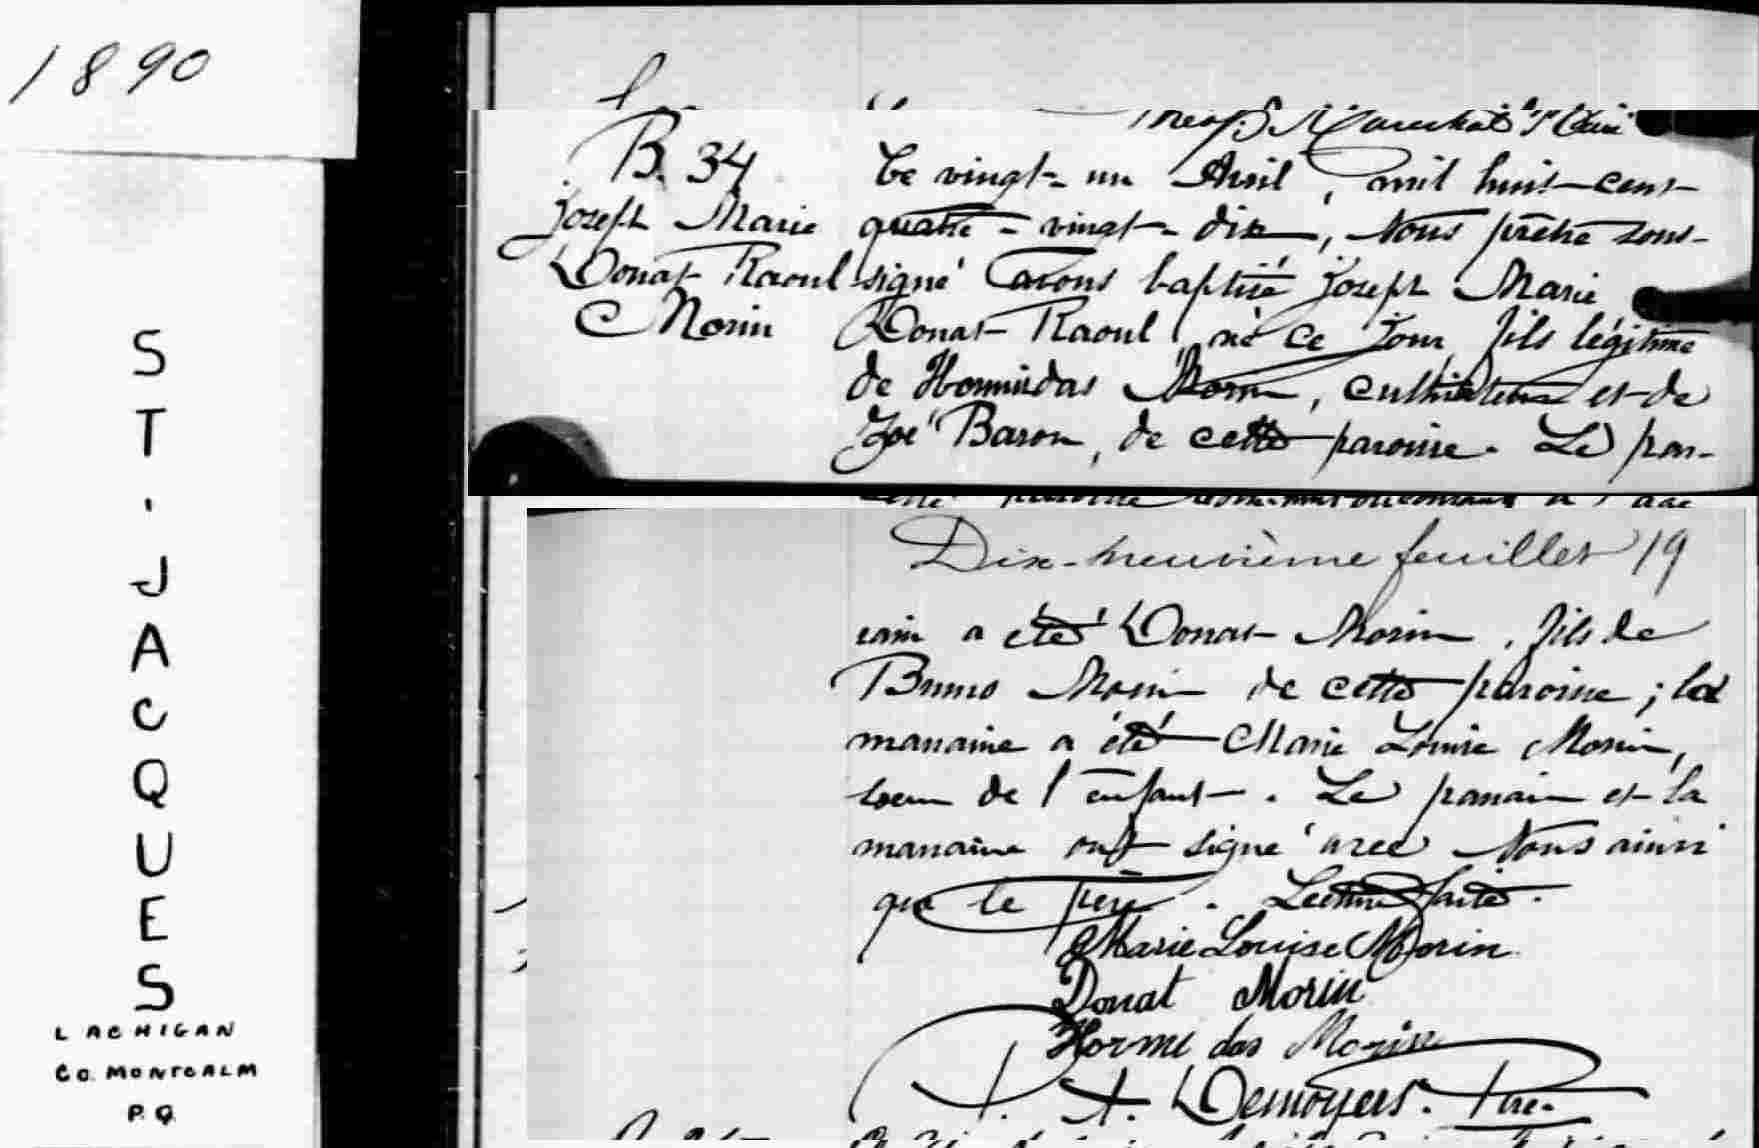 1890
ST. JACQUES
LACHIGAN
CO. MONTCALM
P.Q.
B. 34
Joseph Marie
Donat Raoul
Morin
Ce vingt-un Avril, mil huit-cent-
quatre-vingt-dix, Nous prêtre sous-
signé avons baptisé Joseph Marie
Donat Raoul, né ce jour, fils légitime
de Hormisdas Morin, cultivateur et de
Zoé Baron, de cette paroisse. Le par-
Dix-neuvième feuillet 19
rain a été Donat Morin, fils de
Bruno Morin de cette paroisse ; la
marraine a été Marie Louise Morin,
soeur de l'enfant. Le parrain et la
marraine ont signé avec Nous ainsi
que le père. Lecture faite.
Marie Louise Morin
Donat Morin
Hormidas Morin
A. Desnoyers. Ptre.